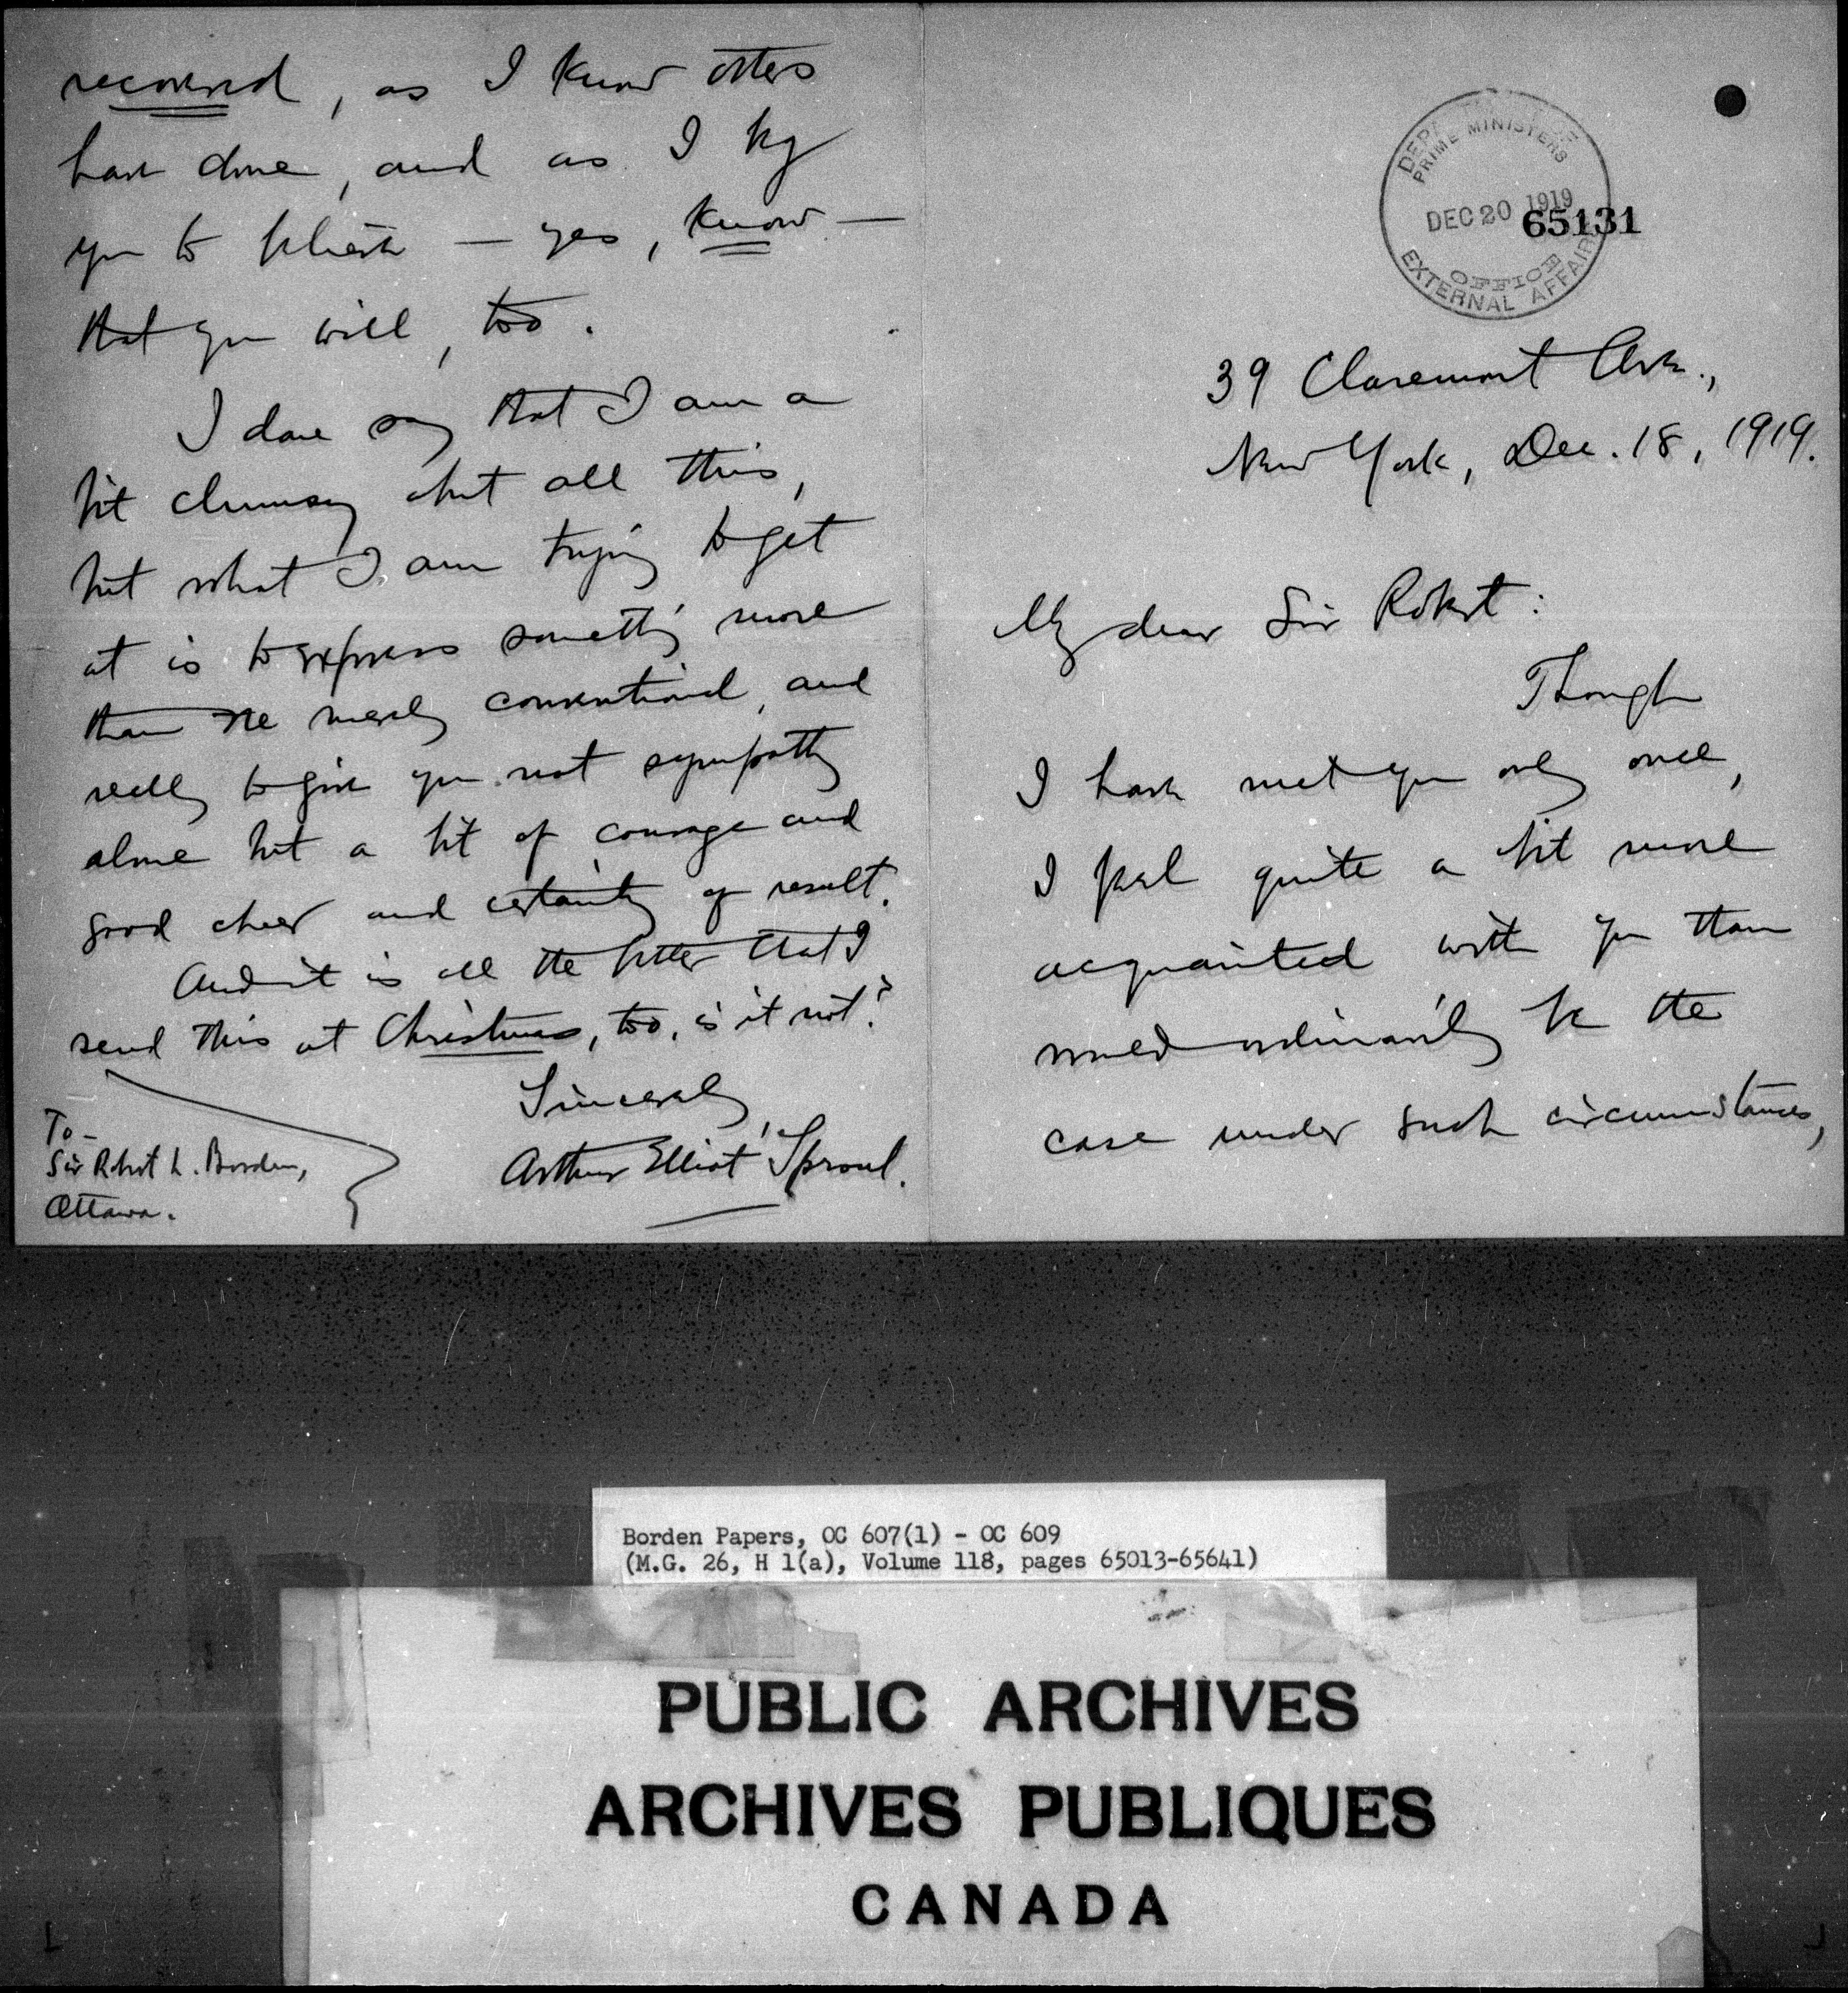 recovered, as I know others
have done, and as I beg
you to believe — yes, know —
that you will, too.
I dare say that I am a
bit clumsy about all this,
but what I am trying to get
at is to express something more
than the merely conventional, and
really to give you not sympathy
alone but a bit of courage and
good cheer and certainty of result.
And it is all the better that I
send this at Christmas, too, is it not?
Sincerely,
Arthur Elliot Sproul.
To—
Sir Robert L. Borden,
Ottawa.
PRIME MINISTERS
OFFICE
DEC 20 1919
EXTERNAL AFFAIRS
65131
39 Claremont Ave.,
New York, Dec. 18, 1919.
My dear Sir Robert:
Though
I have met you only once,
I feel quite a bit more
acquainted with you than
would ordinarily be the
case under such circumstances,
Borden Papers, OC 607(1) - OC 609
(M.G. 26, H 1(a), Volume 118, pages 65013-65641)
PUBLIC ARCHIVES
ARCHIVES PUBLIQUES
CANADA